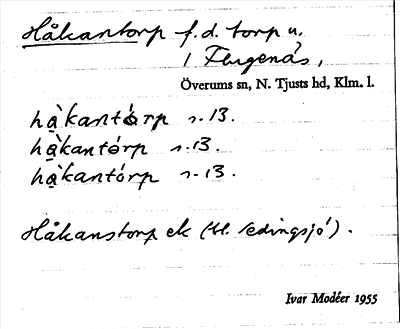 Håkantorp f.d. torp u.
/ Flugenäs,
Överums sn, N. Tjusts hd, Klm. l.
hå̀kantórp s. 13.
hå̀kantórp s. 13.
hå̀kantórp s. 13.
Håkanstorp ek (bl. Ledingsjö).
Ivar Modéer 1955